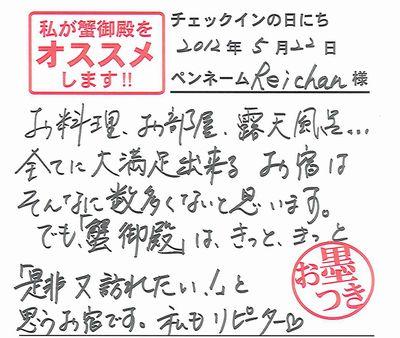 私が蟹御殿を
オススメ
します!!
チェックインの日にち
2012年 5月22日
ペンネーム Reichan 様
お料理、お部屋、露天風呂...
全てに大満足出来る お宿は
そんなに数多くないと思います。
でも、「蟹御殿」は、きっと、きっと
「是非又訪れたい!」と
思うお宿です。私もリピーター♡
お墨つき